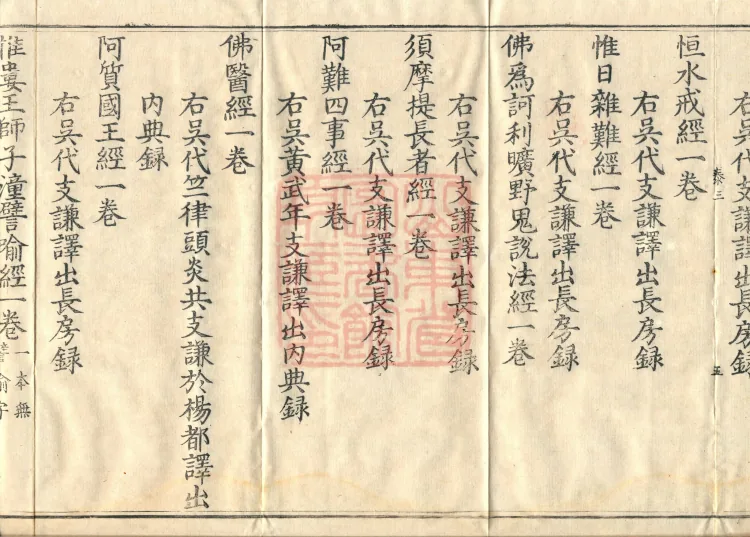 右吳代支謙譯出長房録
泰三 五
恒水戒經一卷
右吳代支謙譯出長房録
惟日雜難經一卷
右吳代支謙譯出長房録
佛爲訶利曠野鬼說法經一卷
右吳代支謙譯出長房録
須摩提長者經一卷
右吳代支謙譯出長房録
阿難四事經一卷
右吳黄武年支謙譯出内典録
佛醫經一卷
右吳代竺律頭炎共支謙於楊都譯出
内典録
阿質國王經一卷
右吳代支謙譯出長房録
惟婁王師子湩譬喻經一卷 一本無
譬喻字